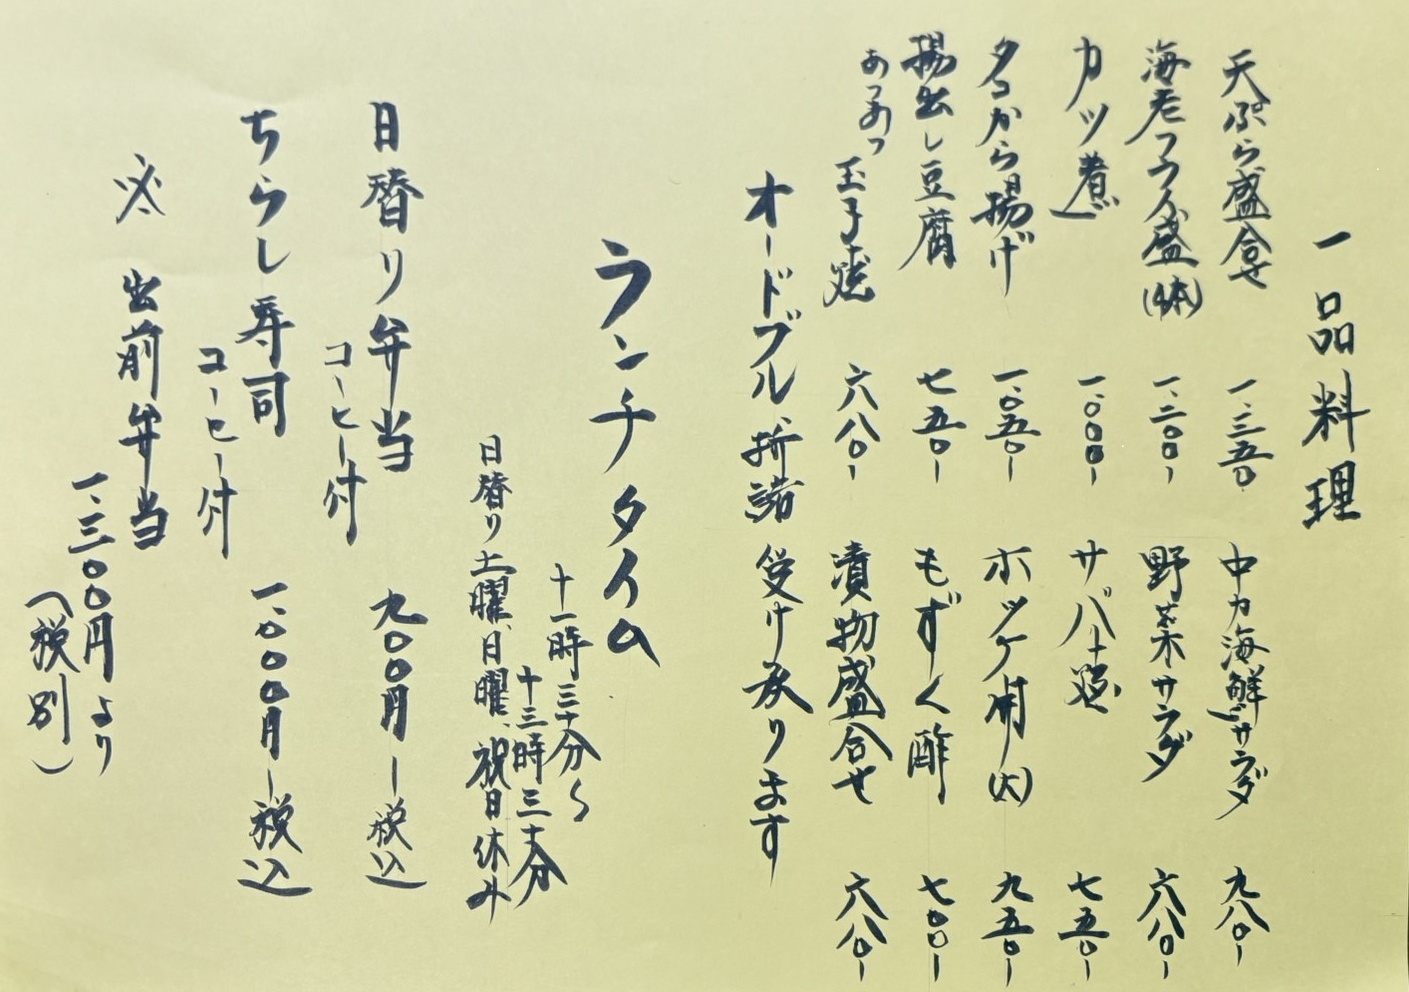 一品料理
天ぷら盛合せ 一、三五〇
海老フライ盛(4本) 一、二〇〇-
カツ煮 一、〇〇〇-
タコから揚げ 一、〇五〇-
揚出し豆腐 七五〇-
あつあつ玉子焼 六八〇-
中力海鮮サラダ 九八〇-
野菜サラダ 六八〇-
サバ十焼 七五〇-
ホッケ開(大) 九五〇-
もずく酢 七〇〇-
漬物盛合せ 六八〇-
オードブル、折詰 受け承ります
ランチタイム
十一時三十分〜
十三時三十分
日替り土曜、日曜、祝日休み
日替り弁当 九〇〇円-税込
コーヒー付
ちらし寿司 一、〇〇〇円-税込
コーヒー付
※ 出前弁当
一、三〇〇円より
(税別)